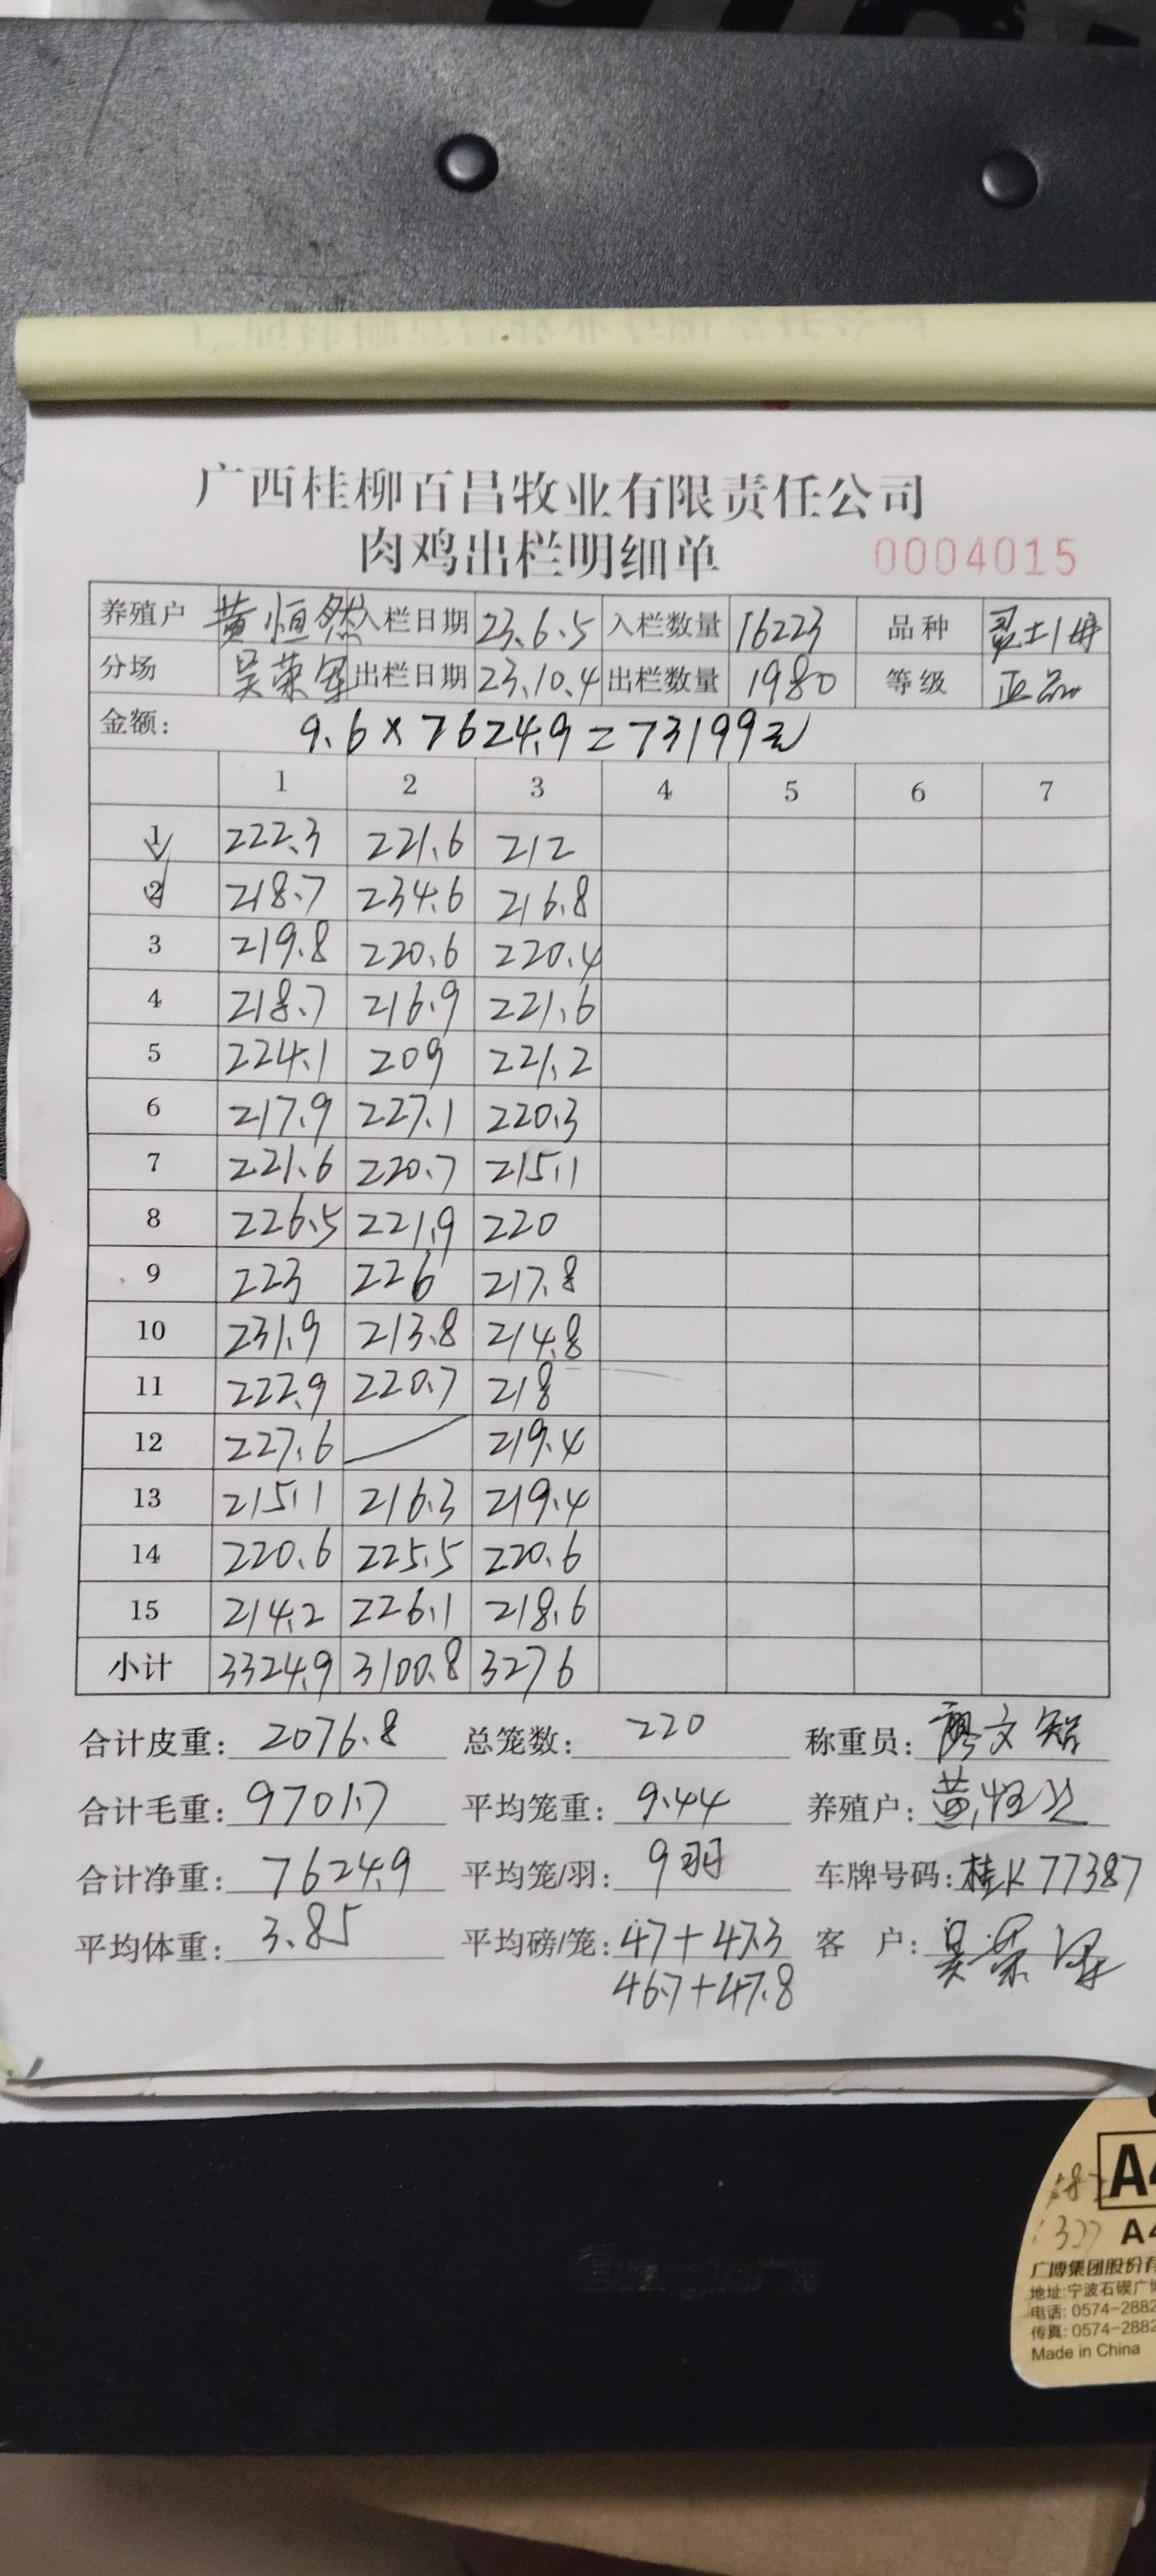 广西桂柳百昌牧业有限责任公司
肉鸡出栏明细单 0004015
养殖户 黄恒然 入栏日期 23.6.5 入栏数量 16223 品种
分场 吴荣军 出栏日期 23.10.4 出栏数量 1980 等级 正品
金额: 9.6×7624.9=73199元
1 2 3 4 5 6 7
1 222.3 221.6 212
2 218.7 234.6 216.8
3 219.8 220.6 220.4
4 218.7 216.9 221.6
5 224.1 209 221.2
6 217.9 227.1 220.3
7 221.6 220.7 215.1
8 226.5 221.9 220
9 223 226 217.8
10 231.9 213.8 214.8
11 222.9 220.7 218
12 227.6 219.4
13 215.1 216.3 219.4
14 220.6 225.5 220.6
15 214.2 226.1 218.6
小计 3324.9 3100.8 3276
合计皮重: 2076.8 总笼数: 220 称重员: 廖文铭
合计毛重: 9701.7 平均笼重: 9.44 养殖户: 黄恒然
合计净重: 7624.9 平均笼/羽: 9羽 车牌号码: 桂K77387
平均体重: 3.85 平均磅/笼: 47+47.3 客 户: 吴荣军
46.7+47.8
A4
A4
广博集团股份有
地址:宁波石碶广博
电话: 0574-2882
传真: 0574-2882
Made in China